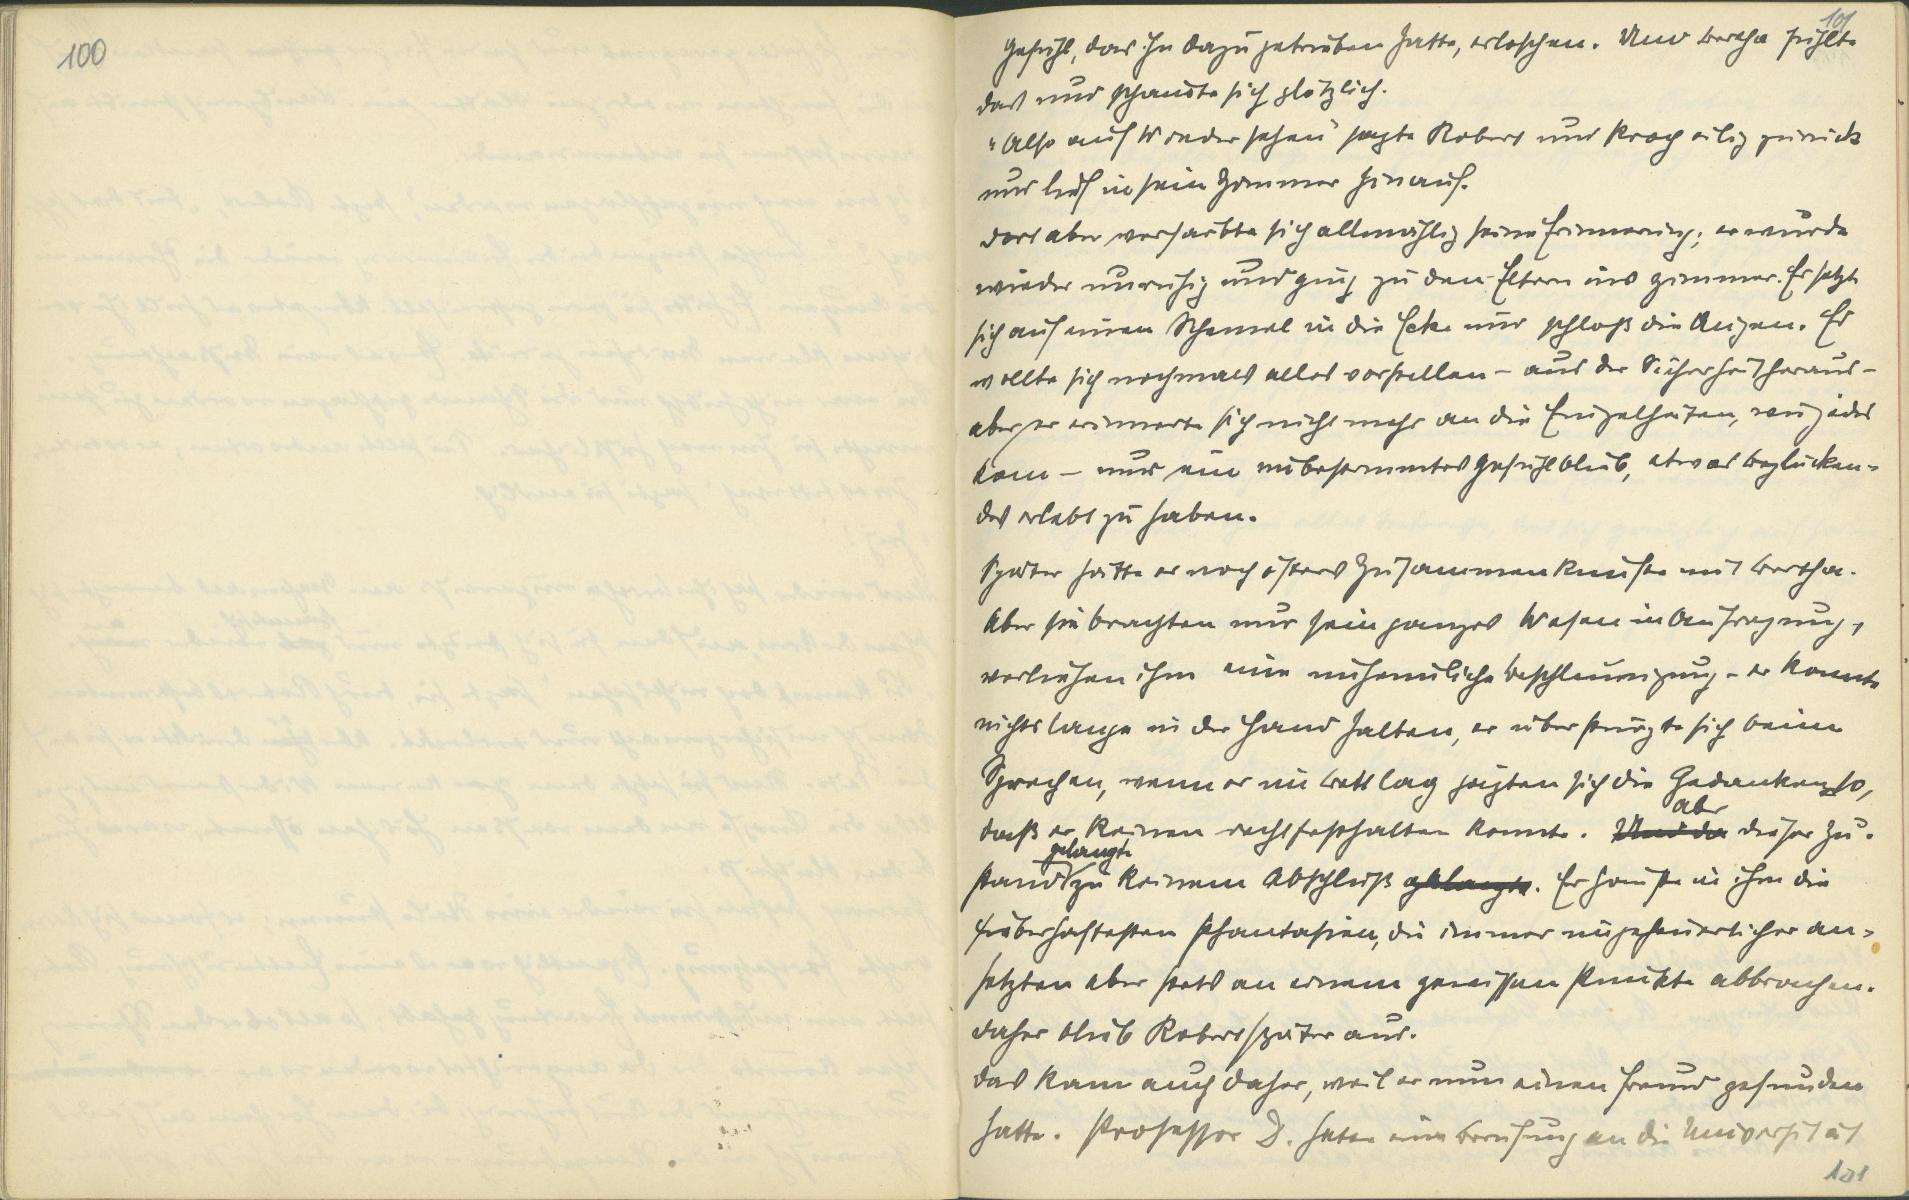 100
101
Gefühl, das ihn dazu getrieben hatte, erloschen. Und Bertha fühlte
das und schämte sich plötzlich.
"Also auf Wiedersehen" sagte Robert und kroch eilig zurück
und lief in sein Zimmer hinauf.
Dort aber verfärbte sich allmählig seine Erinnerung; er wurde
wieder unruhig und ging zu den Eltern ins Zimmer. Er setzte
sich auf einen Schemel in die Ecke und schloß die Augen. Er
wollte sich nochmals alles vorstellen – aus der Sicherheit heraus –
aber er erinnerte sich nicht mehr an die Einzelheiten, wie jedes
kam – nur ein unbestimmtes Gefühl blieb, etwas beglücken-
des erlebt zu haben.
Später hatte er noch öfters Zusammenkünfte mit Bertha.
Aber sie brachten nur sein ganzes Wesen in Aufregung,
verliehen ihm eine unheimliche Beschleunigung – er konnte
nichts lange in der Hand halten, er überstürzte sich beim
Sprechen, wenn er im Bett lag jagten sich die Gedanken so,
daß er keinen recht festhalten konnte. Und da aber dieser Zu-
stand gelangte zu keinem Abschluß gelangte. Er häufte in ihm die
fieberhaftesten Phantasien, die immer ungeheuerlicher an-
setzten aber stets an einem gewissen Punkte abbrachen.
Daher blieb Robert später aus.
Das kam auch daher, weil er nun einen Freund gefunden
hatte. Professor D. hatte eine Berufung an die Universität
101